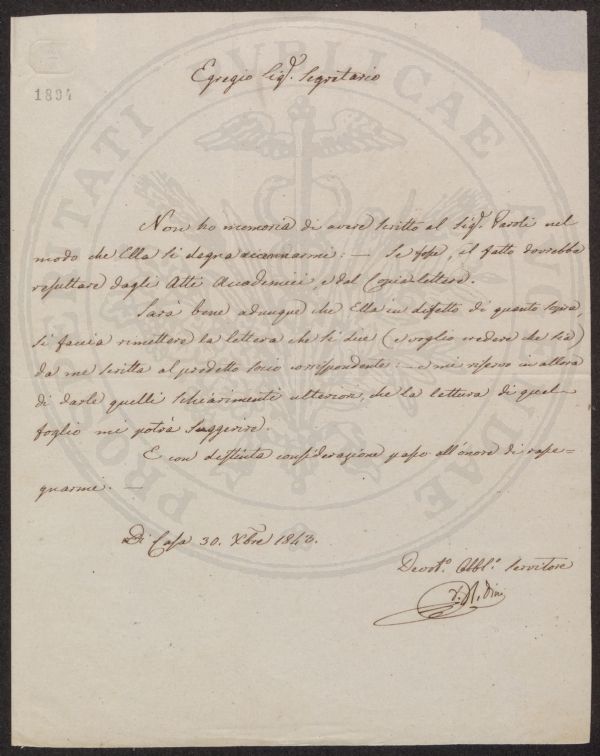 1894
Egregio Sig.r Segretario
Non ho memoria di avere scritto al Sig.r Paroli nel
modo che Ella si degna accennarmi: — Se fosse, il fatto dovrebbe
resultare dagli Atti Accademici, e dal Copia-lettere.
Sarà bene adunque che Ella in difetto di quanto sopra,
si faccia rimettere la lettera che si dice (e voglio credere che sia)
da me scritta al predetto socio corrispondente: — e mi riservo in allora
di darle quelli schiarimenti ulteriori, che la lettura di quel
foglio mi potrà suggerire.
E con distinta considerazione passo all'onore di rasse=
gnarmi. —
Di Casa 30. Xbre 1843.
Devot.o Obbl.o Servitore
Dini